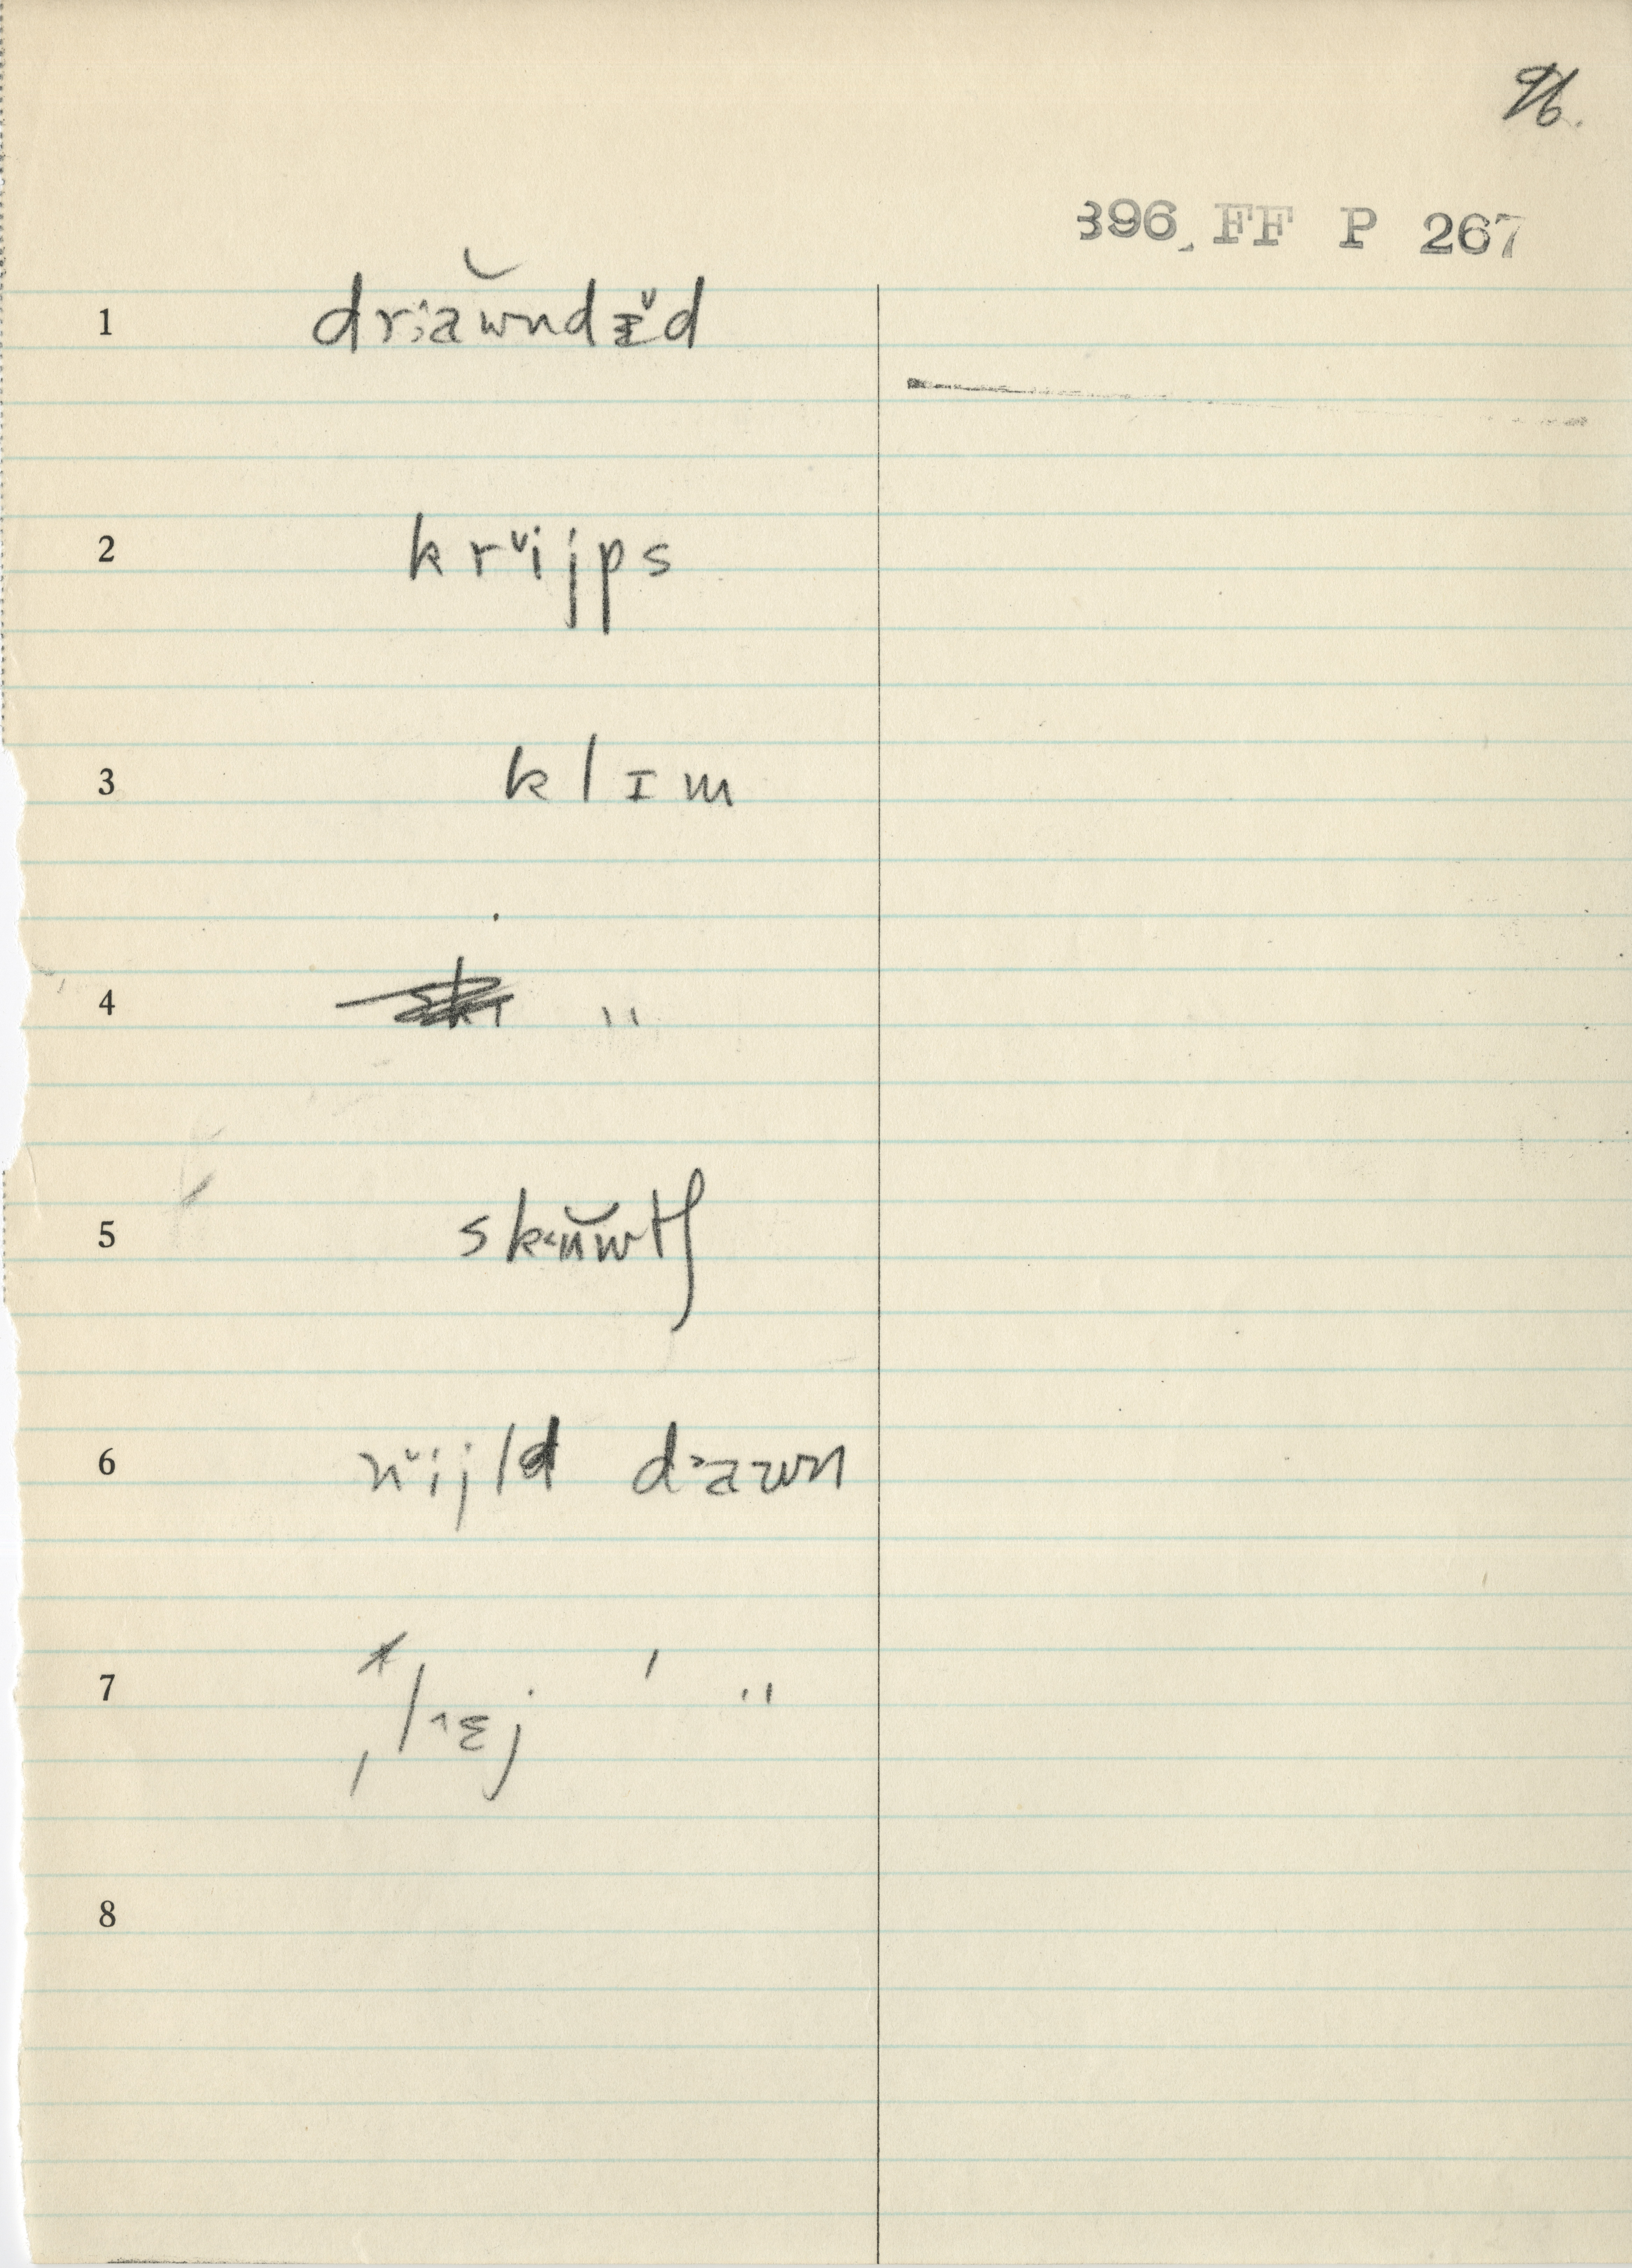 96.
396 FF P 267
1 drꞏăwndɪ̆d
2 krᵛijps
3 klɪm
4 "
5 sk˂ŭwtʃ
6 nᵛijld d˃awn
7 ˌl˄ɛj ˈ "
8